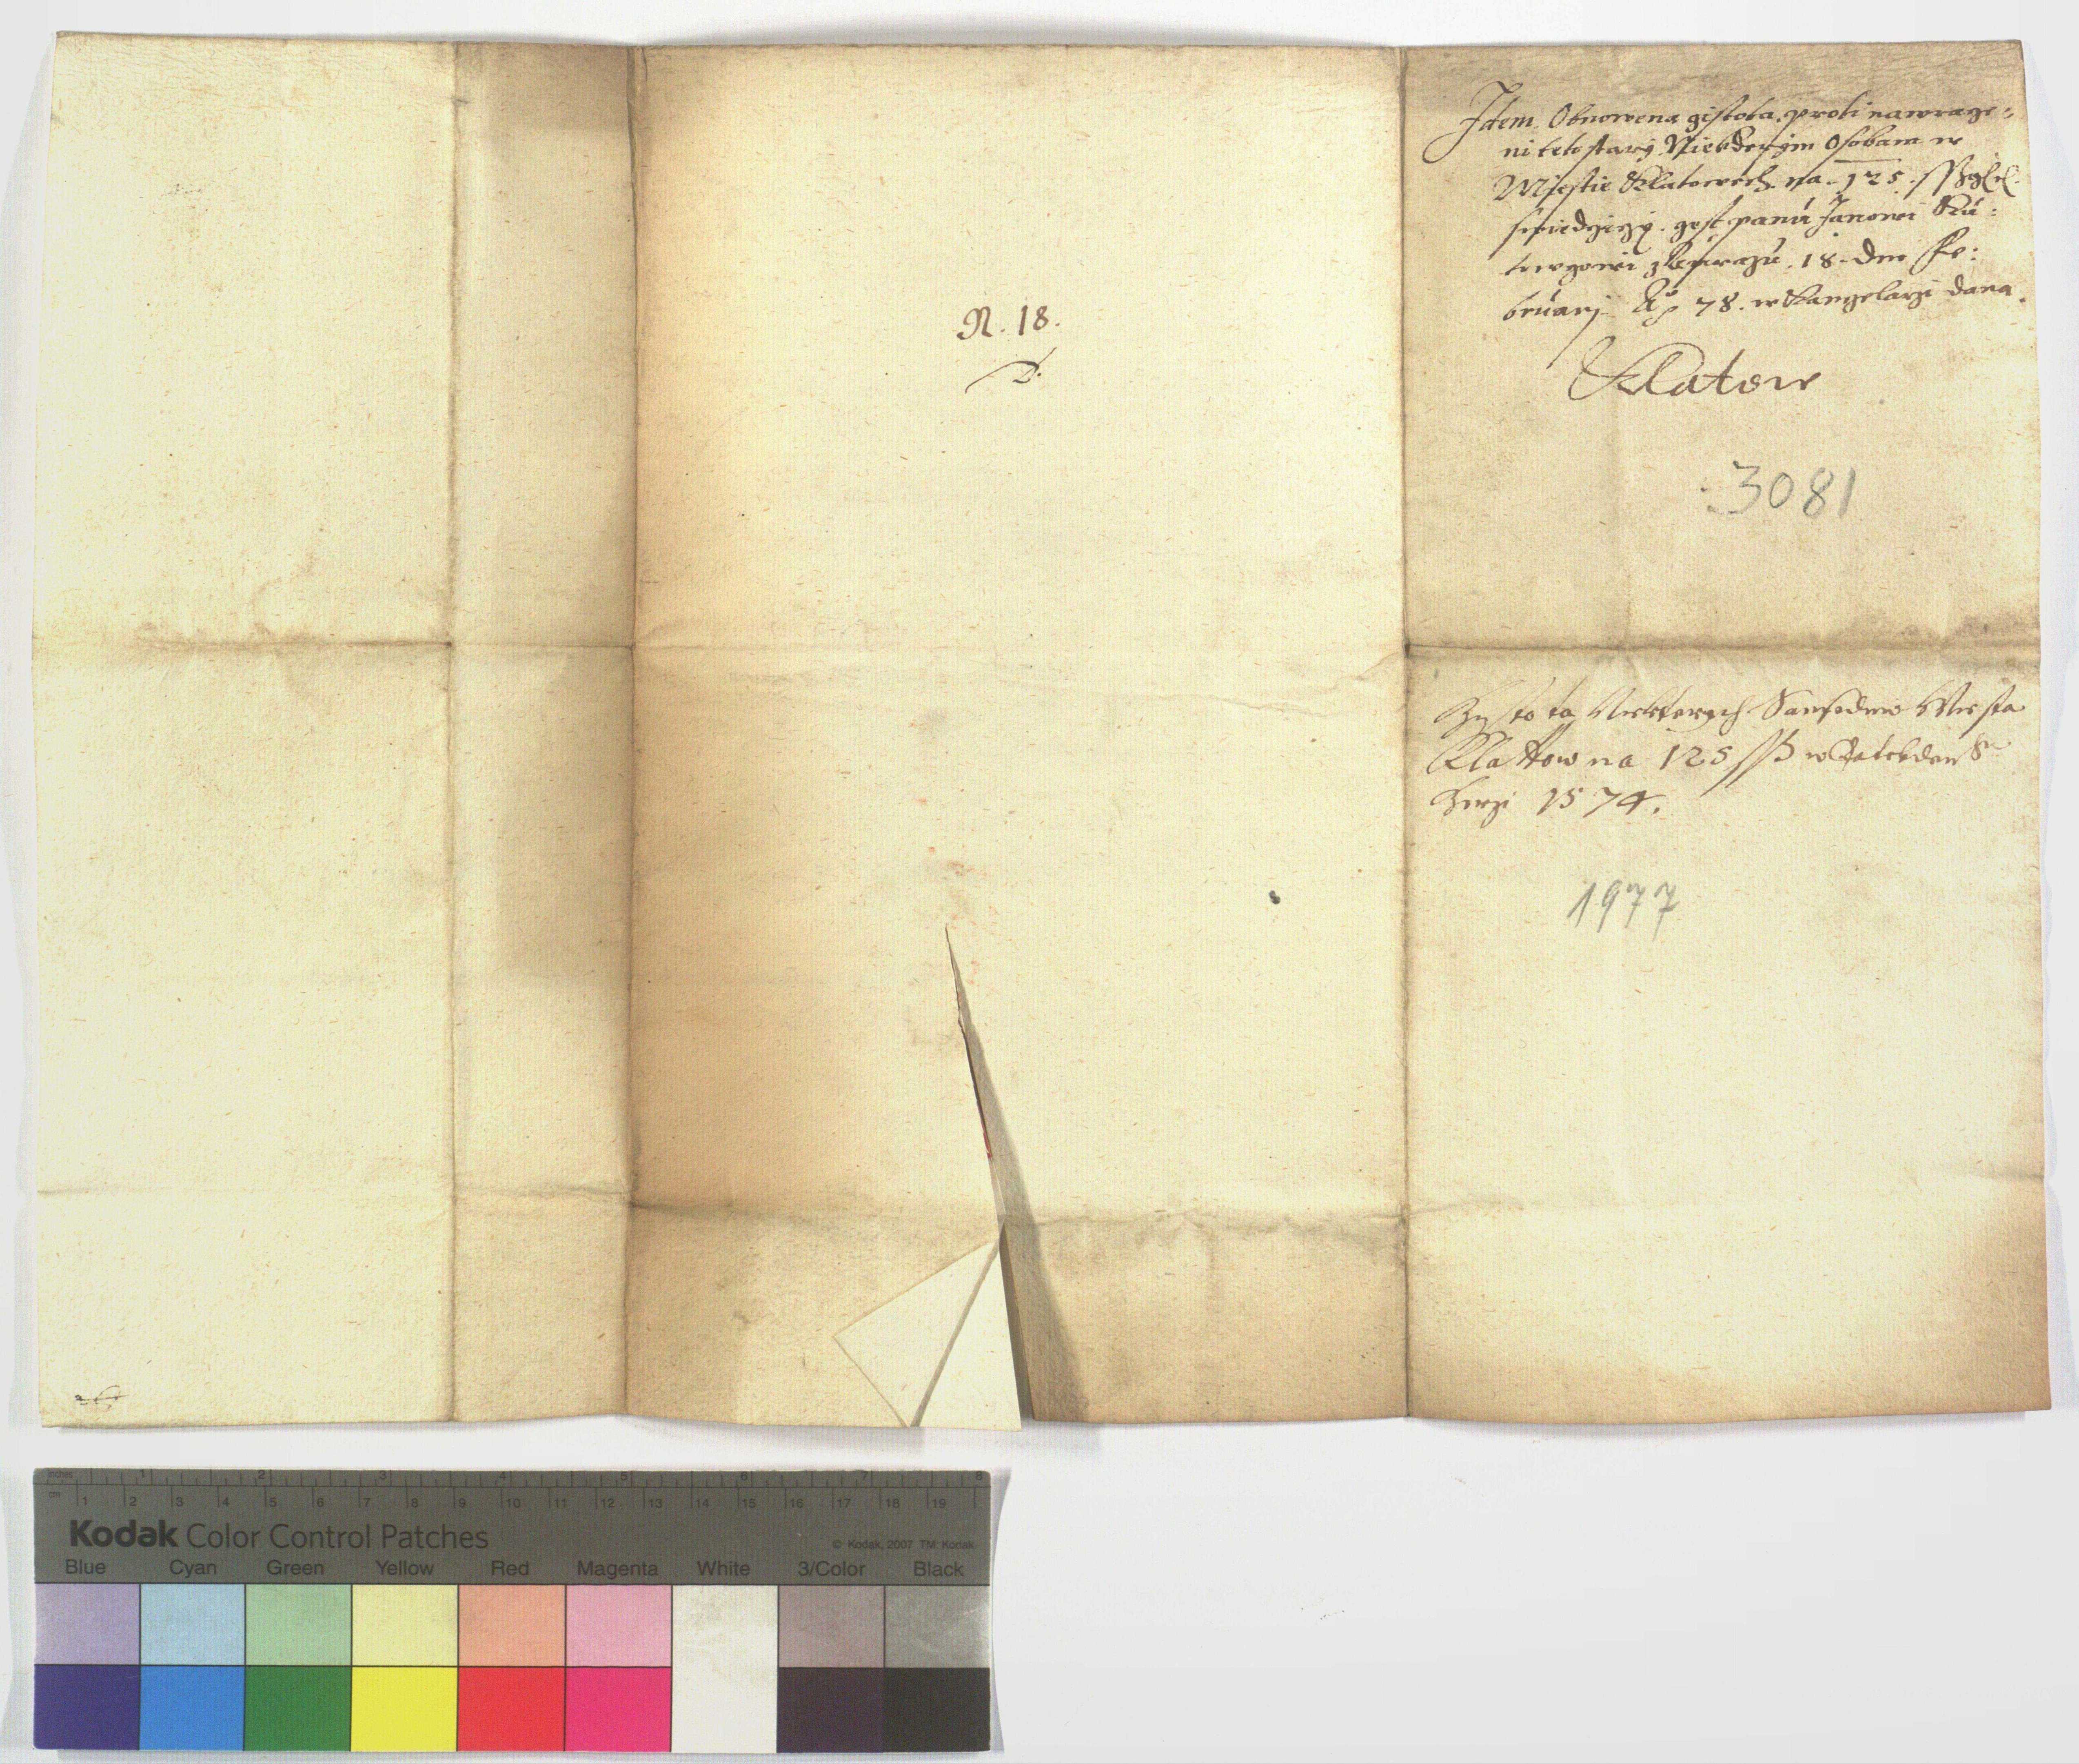 N. 18.
Jdem Obnowena gistota proti nawraze=
ni teto stary Niekderym Osobam w
Miestie Klatowech na 125
swiedczyczy gest panu Janowi
18 dne Fe:
bruarj Ao 78. w Kanczelarzi dana.
Klatow
3081
Gistota Niekterych Sauseduw Miesta
Klattow na 125 ss
1574.
1977
inches 1 2 3 4 5 6 7 8
cm 1 2 3 4 5 6 7 8 9 10 11 12 13 14 15 16 17 18 19
Kodak Color Control Patches
© Kodak, 2007 TM: Kodak
Blue Cyan Green Yellow Red Magenta White 3/Color Black